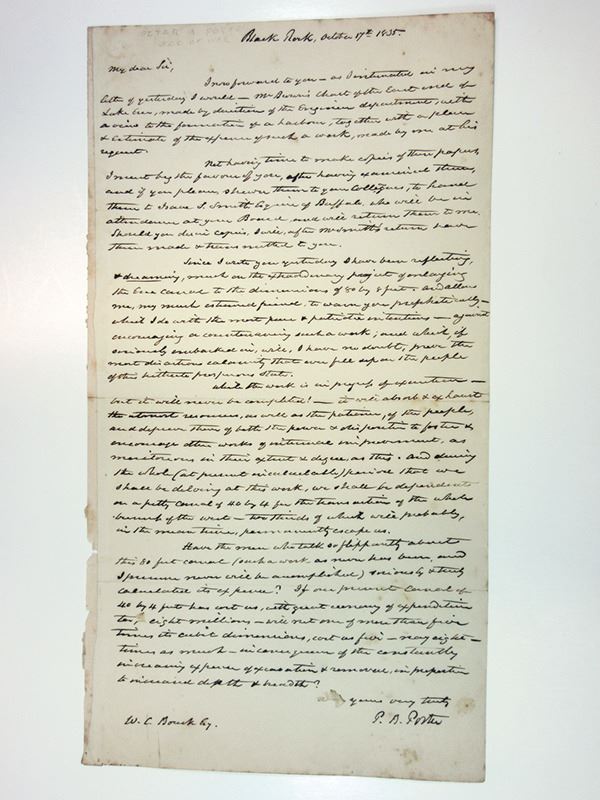 Black Rock, October 17th 1835.
My dear Sir,
I now forward to you – as I intimated in my
letter of yesterday I would – Mr Chart of the East end of
Lake Erie, made by direction of the Engineer department, with
a view to the formation of a harbour, together with a plan
& Estimate of the expense of such a work, made by me at his
request.
Not having time to make copies of these papers,
I must beg the favour of you, after having examined them,
and if you please, shewn them to your Colleagues, to hand
them to Isaac S. Smith Esquire of Buffalo, who will be in
attendance at your Board, and will return them to me.
Should you desire copies, I will, after Mr Smith's return have
them made & transmitted to you.
Since I wrote you yesterday I have been reflecting,
& dreaming, much on the extraordinary project of enlarging
the Erie Canal to the dimensions of 80 by 8 feet. And allow
me, my much esteemed friend, to warn you prophetically –
which I do with the most pure & patriotic intentions – against
encouraging or countenancing such a work; and which if
seriously embarked in, will, I have no doubt, prove the
most disastrous calamity that ever fell upon the people
of this hitherto prosperous State.
While the work is in progress of execution –
but it will never be completed! – it will absorb & exhaust
the utmost resources, as well as the patience, of the people,
and deprive them of both the power & disposition to foster &
encourage other works of internal improvement, as
meritorious in their extent & degree, as this. And during
the whole (at present incalculable) period that we
shall be delving at this work, we shall be dependent
on a petty canal of 40 by 4 for the transaction of the whole
business of the west – two thirds of which will probably,
in the mean time, permanently escape us.
Have the men who talk so flippantly about
this 80 feet canal (such a work as never has been, and
I presume never will be accomplished) seriously & truly
calculated its expense? If our present Canal of
40 by 4 feet has cost us, with great economy of expenditure
too, eight millions – will not one of more than five
times its cubic dimensions, cost us five – nay eight –
times as much – in consequence of the constantly
increasing expense of excavation & removal, in proportion
to increased depth & breadth?
yours very truly
W. C. Bouck Esq. P. B. Porter